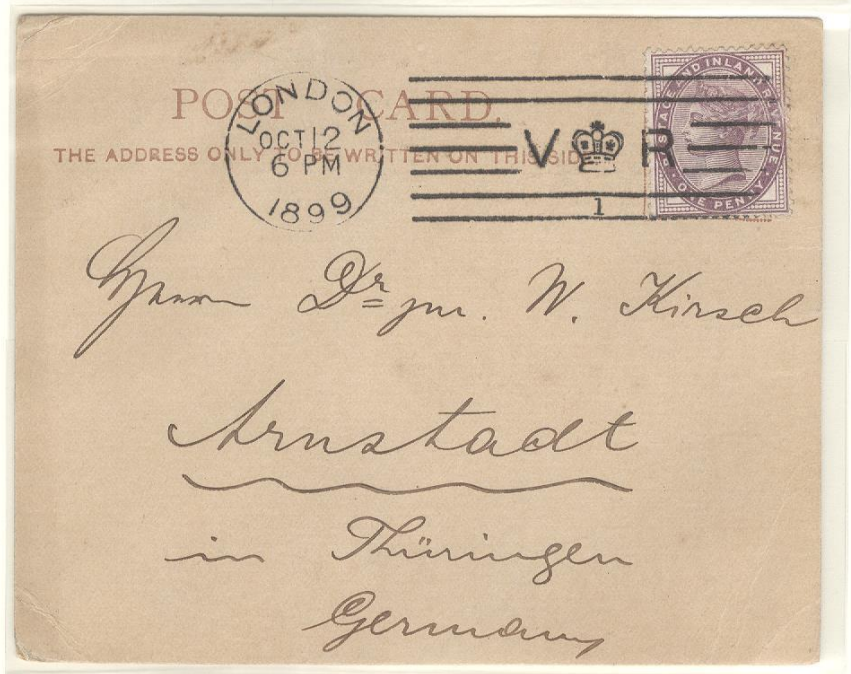 POST CARD.
THE ADDRESS ONLY TO BE WRITTEN ON THIS SIDE
LONDON
OCT 12
6 PM
1899
V R
1
POSTAGE AND INLAND REVENUE
ONE PENNY
Herrn Dr jur. W. Kirsch
Arnstadt
in Thüringen
Germany